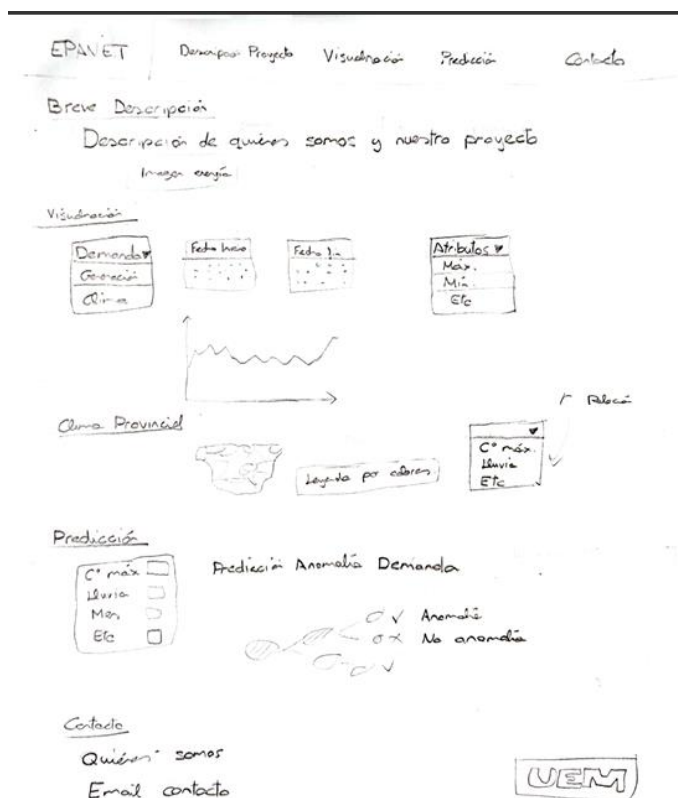 EPANET Descripción Proyecto Visualización Predicción Contacto
Breve Descripción
Descripción de quiénes somos y nuestro proyecto
Imagen energía
Visualización
Demanda Fecha Inicio Fecha fin Atributos
Generación Máx.
Clima Mín.
Etc
Clima Provincial
Leyenda por colores
Cº máx.
Lluvia
Etc
Predicción
Cº máx
Lluvia
Mes
Etc
Predicción Anomalía Demanda
Anomalía
No anomalía
Contacto
Quiénes somos
Email contacto
UEM